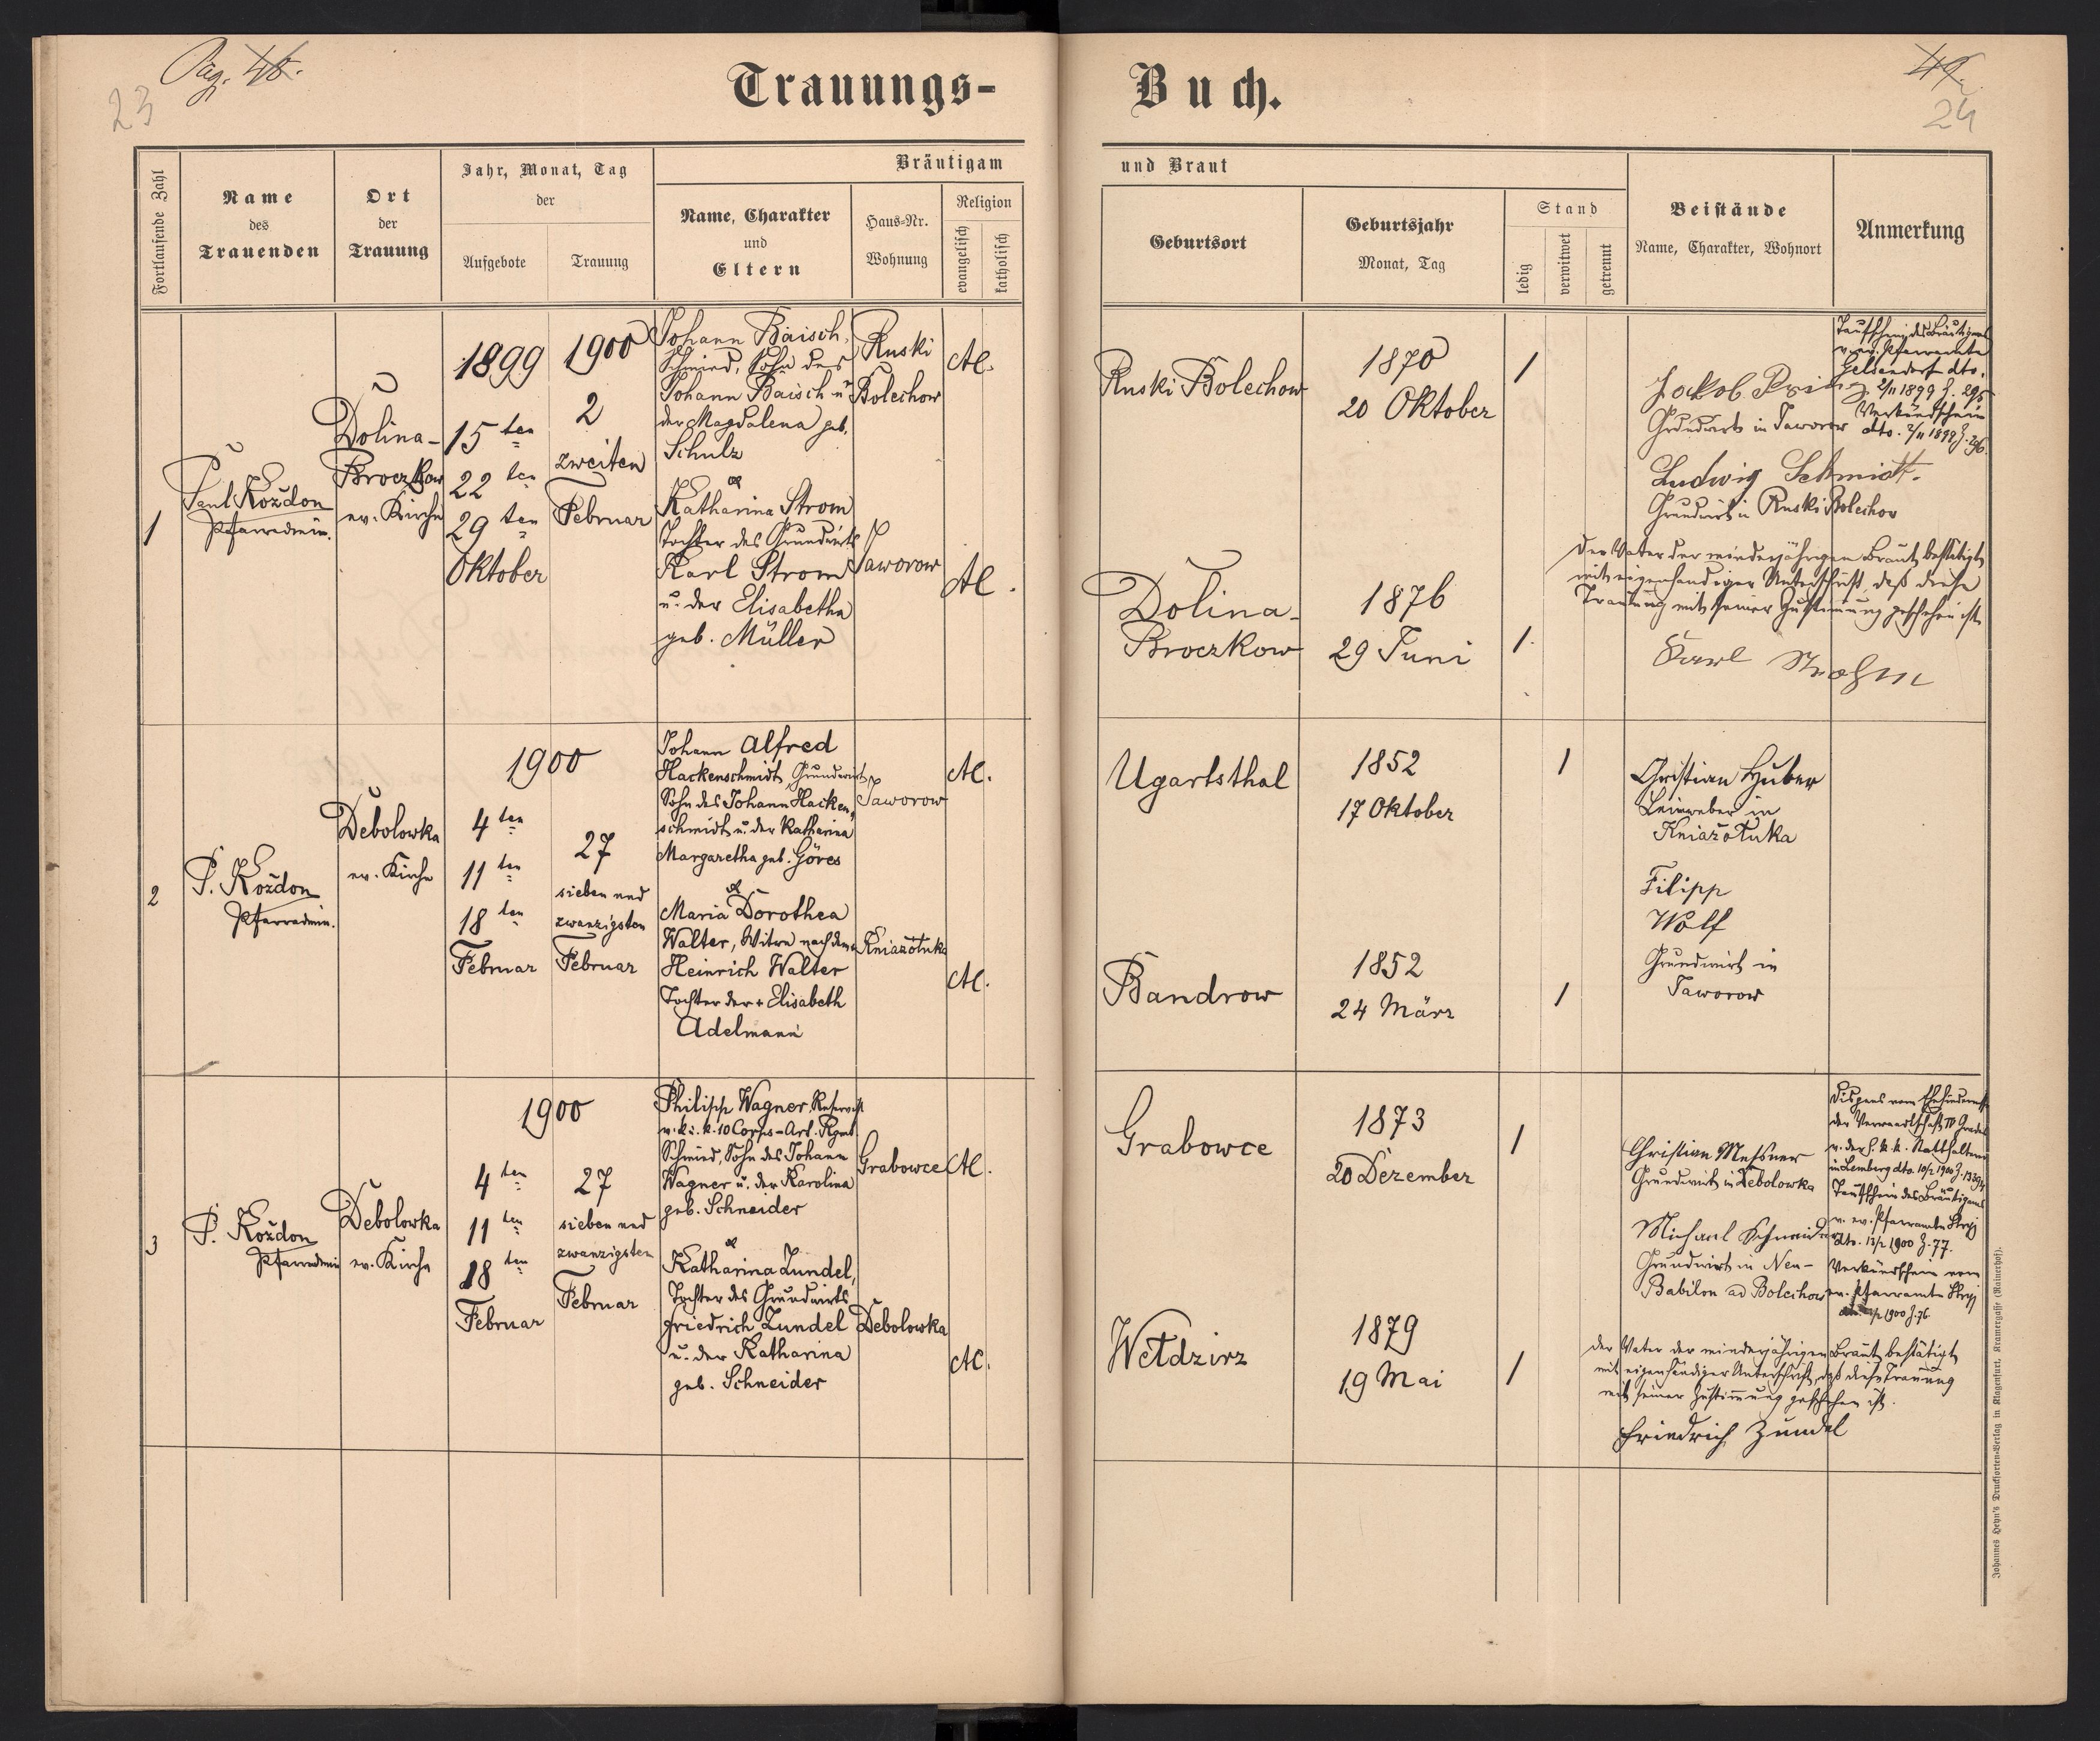 Pag. 48.
23
Trauungs-
Buch.
49.
24
Fortlaufende Zahl
Name
des
Trauenden
Ort
der
Trauung
Jahr, Monat, Tag
der
Aufgebote
Trauung
Bräutigam
Name, Charakter
und
Eltern
Haus-Nr.
Wohnung
Religion
evangelisch
katholisch
und Braut
Geburtsort
Geburtsjahr
Monat, Tag
Stand
ledig
verwitwet
getrennt
Beistände
Name, Charakter, Wohnort
Anmerkung
1
Paul Kożdon
Pfarradmin.
Dolina-
Broczkow
ev. Kirche
1899
15 ten
22 ten
29 ten
Oktober
1900
2
zweiten
Februar
Johann Baisch,
Schmied, Sohn des
Johann Baisch u.
der Magdalena geb.
Schulz
Katharina Strom
Tochter des Grundwirts
Karl Strom
u. der Elisabetha
geb. Müller
Ruski
Bolechow
Jaworow
AC.
AC.
Ruski Bolechow
1870
20 Oktober
1
Dolina-
Broczkow
1876
29 Juni
1
Jakob Prinz
Grundwirt in Jaworow
Ludwig Schmidt.
Grundwirt in Ruski Bolechow
Taufschein des Bräutigams
v. ev. Pfarramte
Gelsendorf dto.
2/11 1899 Z. 295
Verkündschein
dto. 2/11 1899 Z. 296.
Der Vater der minderjährigen Braut bestätigt
mit eigenhändiger Unterschrift, daß diese
Trauung mit seiner Zustimmung geschehen ist.
Karl Strohm
2
P. Kożdon
Pfarradmin.
Debolowka
ev. Kirche
1900
4 ten
11 ten
18 ten
Februar
27
sieben und
zwanzigsten
Februar
Johann Alfred
Hackenschmidt, Grundwirt
Sohn des Johann Hacken-
schmidt u. der Katharina
Margaretha geb. Göres
Maria Dorothea
Walter, Witwe nach dem +
Heinrich Walter
Tochter der + Elisabeth
Adelmann
Jaworow
Kniazołuka
AC.
AC.
Ugartsthal
1852
17 Oktober
1
Bandrow
1852
24 März
1
Christian Huber
Leinweber in
Kniazołuka
Filipp
Wolf
Grundwirt in
Jaworow
3
P. Kożdon
Pfarradmin
Debolowka
ev. Kirche
1900
4 ten
11 ten
18 ten
Februar
27
sieben und
zwanzigsten
Februar
Philipp Wagner, Reservist
v. k. u. k. 10 Corps-Art. Rgmt.
Schmied, Sohn des Johann
Wagner u. der Karolina
geb. Schneider
Katharina Zundel,
Tochter des Grundwirts
Friedrich Zundel
u. der Katharina
geb. Schneider
Grabowce
Debolowka
AC.
AC.
Grabowce
1873
20 Dezember
1
Wełdzirz
1879
19 Mai
1
Christian Messner
Grundwirt in Debolowka
Michael Schneider
Grundwirt in Neu-
Babilon ad Bolechow
Dispens vom Ehehindernisse
der Verwandtschaft IV Grades
v. der h. k. k. Statthalterei
in Lemberg dto. 10/2 1900 Z. 13394
Taufschein des Bräutigams
v. ev. Pfarramte Stryj
dto. 13/2 1900 Z. 77.
Verkündschein vom
ev. Pfarramte Stryj
1900 Z. 76
Der Vater der minderjährigen Braut bestätigt
mit eigenhändiger Unterschrift, daß diese Trauung
mit seiner Zustimmung geschehen ist.
Friedrich Zundel
Johannes Heyn's Drucksorten-Verlag in Klagenfurt, Kramergasse (Rainerhof).